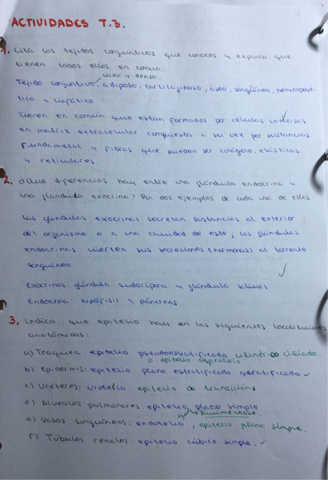 ACTIVIDADES T.3.
1. Cita los tejidos conjuntivos que conoces y explica que
tienen todos ellos en común.
laxo y denso.
Tejido conjuntivo, adiposo, cartilaginoso, óseo, sanguíneo, hematopoyé-
tico y linfático
Tienen en común que están formados por células inmersas
en matriz extracelular compuesta a su vez por sustancias
fundamental y fibras que pueden ser colágeno, elásticas
y reticulares.
2. ¿Qué diferencias hay entre una glándula endocrina y
una glándula exocrina? Pon dos ejemplos de cada una de ellas
Las glándulas exocrinas secretan sustancias al exterior
del organismo o a una cavidad de este, las glándulas
endocrinas vierten sus secreciones (hormonas) al torrente
sanguíneo.
Exocrinas glándula sudorípara y glándula
Endocrina: hipófisis y páncreas.
3. Indica que epitelio hay en las siguientes localizaciones
anatómicas:
a) Traquea epitelio pseudoestratificado cilíndrico ciliado.
o epitelio respiratorio
b) Epidermis: epitelio plano estratificado queratinizado
c) Uréteres: urotelio epitelio de transición
d) Alveolos pulmonares: epitelio plano simple
e) Vasos sanguíneos: endotelio, epitelio plano simple.
f) Túbulos renales: epitelio cúbico simple.